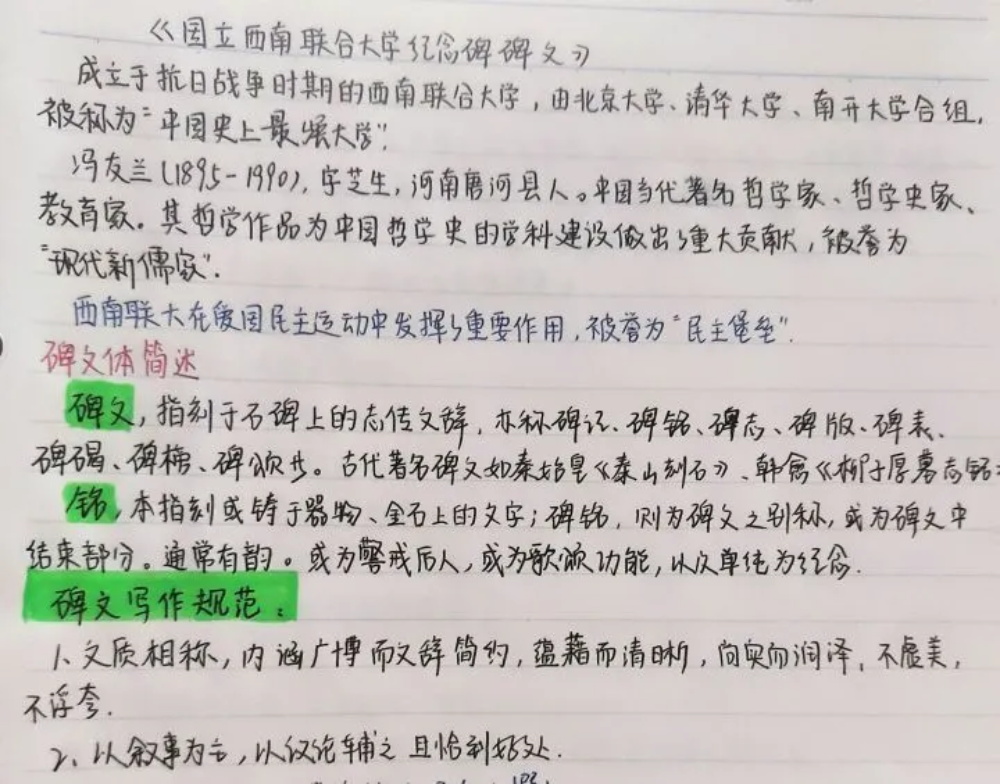 《国立西南联合大学纪念碑碑文》
成立于抗日战争时期的西南联合大学，由北京大学、清华大学、南开大学合组，
被称为“中国史上最强大学”.
冯友兰(1895-1990)，字芝生，河南唐河县人。中国当代著名哲学家、哲学史家、
教育家。其哲学作品为中国哲学史的学科建设做出了重大贡献，被誉为
“现代新儒家”.
西南联大在爱国民主运动中发挥了重要作用，被誉为“民主堡垒”.
碑文体简述
碑文，指刻于石碑上的志传文辞，亦称碑记、碑铭、碑志、碑版、碑表、
碑碣、碑榜、碑颂等。古代著名碑文如秦始皇《泰山刻石》、韩愈《柳子厚墓志铭
铭，本指刻或铸于器物、金石上的文字；碑铭，则为碑文之别称，或为碑文中
结束部分。通常有韵。或为警戒后人，或为歌颂功能，以及单纯为纪念.
碑文写作规范：
1、文质相称，内涵广博而文辞简约，蕴藉而清晰，尚实而润泽，不虚美，
不浮夸.
2、以叙事为主，以议论辅之 且恰到好处.